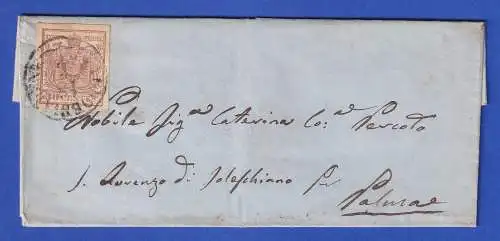 Nobile Sig.ª Caterina Co.ª Percoto
S. Lorenzo di Soleschiano per
Palma